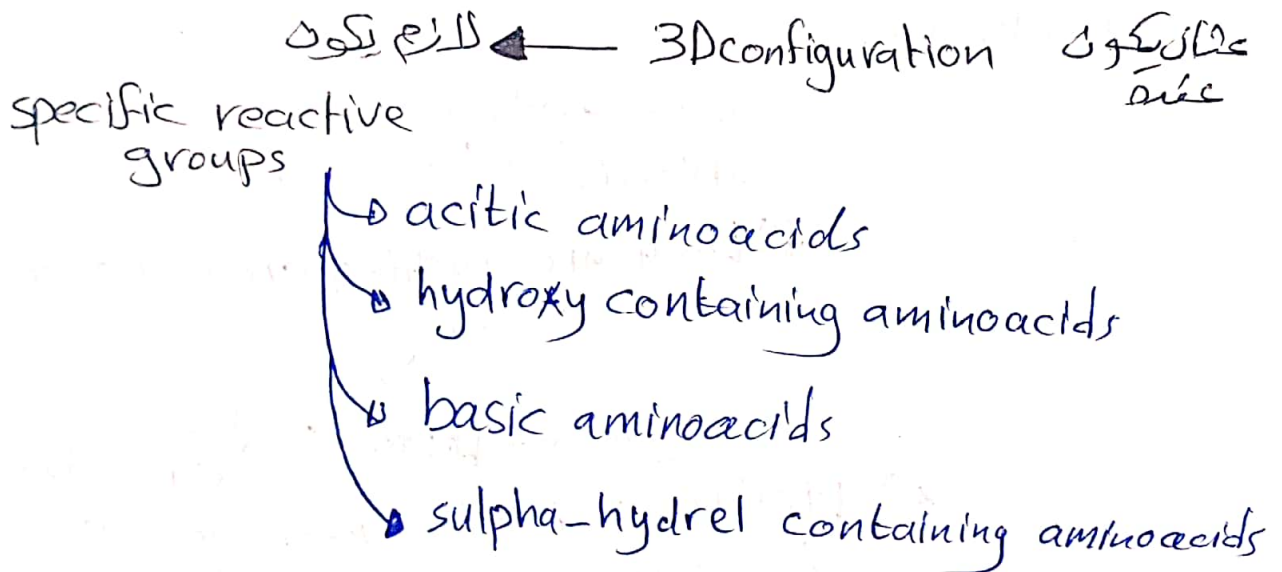 عشان يكون 3Dconfiguration لازم يكون
عنده
specific reactive
groups
acitic aminoacids
hydroxy containing aminoacids
basic aminoacids
sulpha-hydrel containing aminoacids